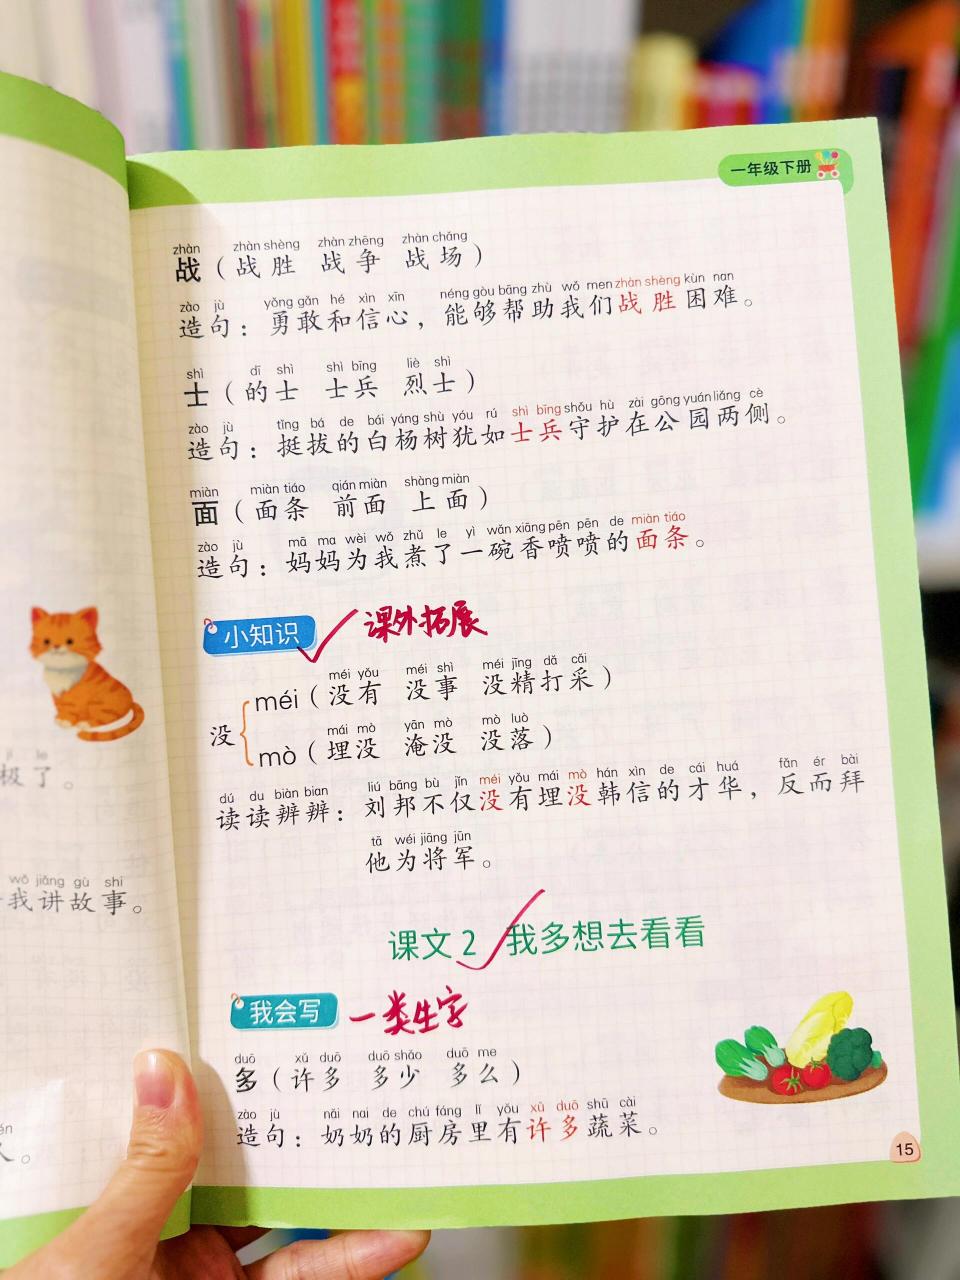 一年级下册
zhàn zhàn shèng zhàn zhēng zhàn chǎng
战（战胜 战争 战场）
zào jù yǒng gǎn hé xìn xīn néng gòu bāng zhù wǒ men zhàn shèng kùn nan
造句：勇敢和信心，能够帮助我们战胜困难。
shì dī shì shì bīng liè shì
士（的士 士兵 烈士）
zào jù tǐng bá de bái yáng shù yóu rú shì bīng shǒu hù zài gōng yuán liǎng cè
造句：挺拔的白杨树犹如士兵守护在公园两侧。
miàn miàn tiáo qián miàn shàng miàn
面（面条 前面 上面）
zào jù mā ma wèi wǒ zhǔ le yì wǎn xiāng pēn pēn de miàn tiáo
造句：妈妈为我煮了一碗香喷喷的面条。
小知识 课外拓展
méi yǒu méi shì méi jīng dǎ cǎi
méi（没有 没事 没精打采）
没
mái mò yān mò mò luò
mò（埋没 淹没 没落）
dú du biàn bian liú bāng bù jǐn méi yǒu mái mò hán xìn de cái huá fǎn ér bài
读读辨辨：刘邦不仅没有埋没韩信的才华，反而拜
tā wéi jiāng jūn
他为将军。
课文 2 我多想去看看
我会写 一类生字
duō xǔ duō duō shǎo duō me
多（许多 多少 多么）
zào jù nǎi nai de chú fáng lǐ yǒu xǔ duō shū cài
造句：奶奶的厨房里有许多蔬菜。
15
jí le
极了。
wǒ jiǎng gù shi
我讲故事。
人。